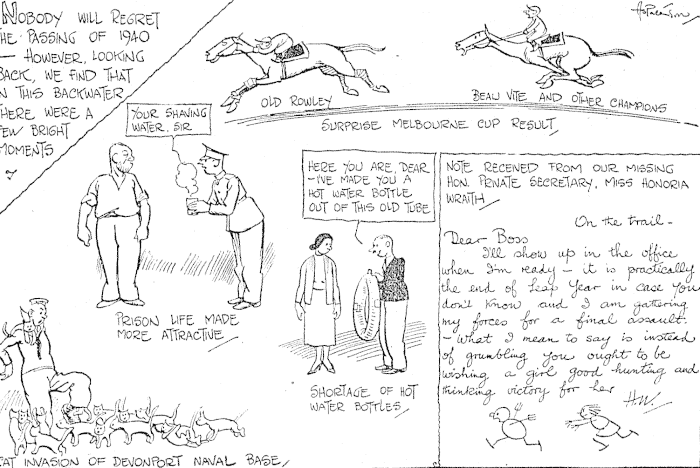 NOBODY WILL REGRET
THE PASSING OF 1940
– HOWEVER, LOOKING
BACK, WE FIND THAT
IN THIS BACKWATER
THERE WERE A
FEW BRIGHT
MOMENTS
OLD ROWLEY
BEAU VITE AND OTHER CHAMPIONS
SURPRISE MELBOURNE CUP RESULT
YOUR SHAVING
WATER, SIR
PRISON LIFE MADE
MORE ATTRACTIVE
HERE YOU ARE, DEAR
– I'VE MADE YOU A
HOT WATER BOTTLE
OUT OF THIS OLD TUBE
SHORTAGE OF HOT
WATER BOTTLES
NOTE RECEIVED FROM OUR MISSING
HON. PRIVATE SECRETARY, MISS HONORIA
WRAITH
On the trail –
Dear Boss
I'll show up in the office
when I'm ready – it is practically
the end of Leap Year in case you
don't know and I am gathering
my forces for a final assault.
– What I mean to say is instead
of grumbling you ought to be
wishing a girl good hunting and
thinking victory for her
H.W.
CAT INVASION OF DEVONPORT NAVAL BASE